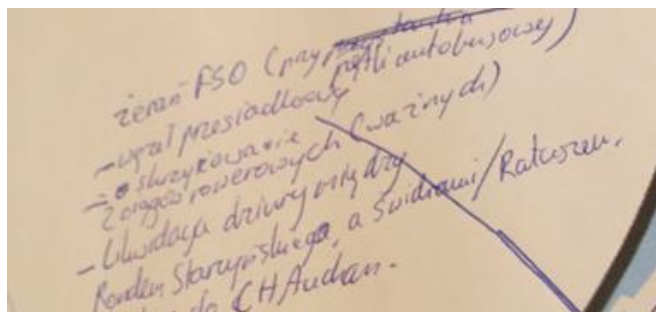 żerań FSO (przy
pętli autobusowej)
- węzeł przesiadkowy
- skrzyżowanie
2 ciągów rowerowych (ważnych)
- Likwidacja dziury między
Rondem Starzyńskiego, a Świdrami/Ratuszem.
CH Auchan.